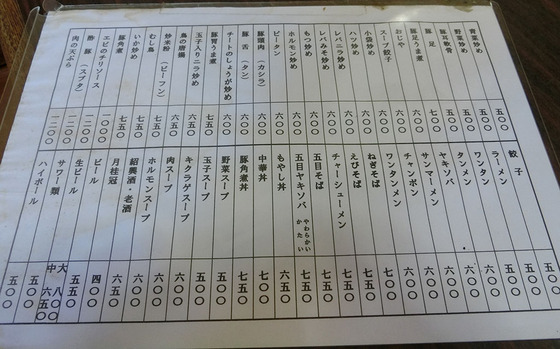 青菜炒め 五〇〇
野菜炒め 五〇〇
豚耳軟骨 五〇〇
豚足 六〇〇
豚足うま煮 六〇〇
おじや 六〇〇
スープ餃子 六〇〇
小袋炒め 六〇〇
ハツ炒め 六〇〇
レバニラ炒め 六〇〇
レバみそ炒め 六〇〇
もつ炒め 六〇〇
ホルモン炒め 六〇〇
ピータン 六〇〇
豚頭肉（カシラ） 六〇〇
豚舌（タン） 六〇〇
チートのしょうが炒め 六〇〇
豚胃うま煮 六〇〇
玉子入りニラ炒め 七五〇
鳥の唐揚 六五〇
炒米粉（ビーフン） 六五〇
むし鳥 七五〇
いか炒め 七五〇
豚角煮 七五〇
エビのチリソース 一〇〇〇
酢豚（スブタ） 一二〇〇
肉の天ぷら 一二〇〇
餃子 五〇〇
ラーメン 五五〇
ワンタン 五〇〇
タンメン 六〇〇
ヤキソバ 六〇〇
サンマーメン 六〇〇
チャンポン 七〇〇
ワンタンメン 七〇〇
ねぎそば 七〇〇
えびそば 七五〇
チャーシューメン 七五〇
五目そば 七五〇
五目ヤキソバ やわらかい かたい 七五〇
もやし丼 六五〇
中華丼 七〇〇
豚角煮丼 七五〇
野菜スープ 五〇〇
玉子スープ 五〇〇
キクラゲスープ 六〇〇
肉スープ 六〇〇
ホルモンスープ 六五〇
紹興酒・老酒 六五〇
月桂冠 四〇〇
ビール 五五〇
生ビール 大 八〇〇 中 六五〇
サワー類 五〇〇
ハイボール 五〇〇